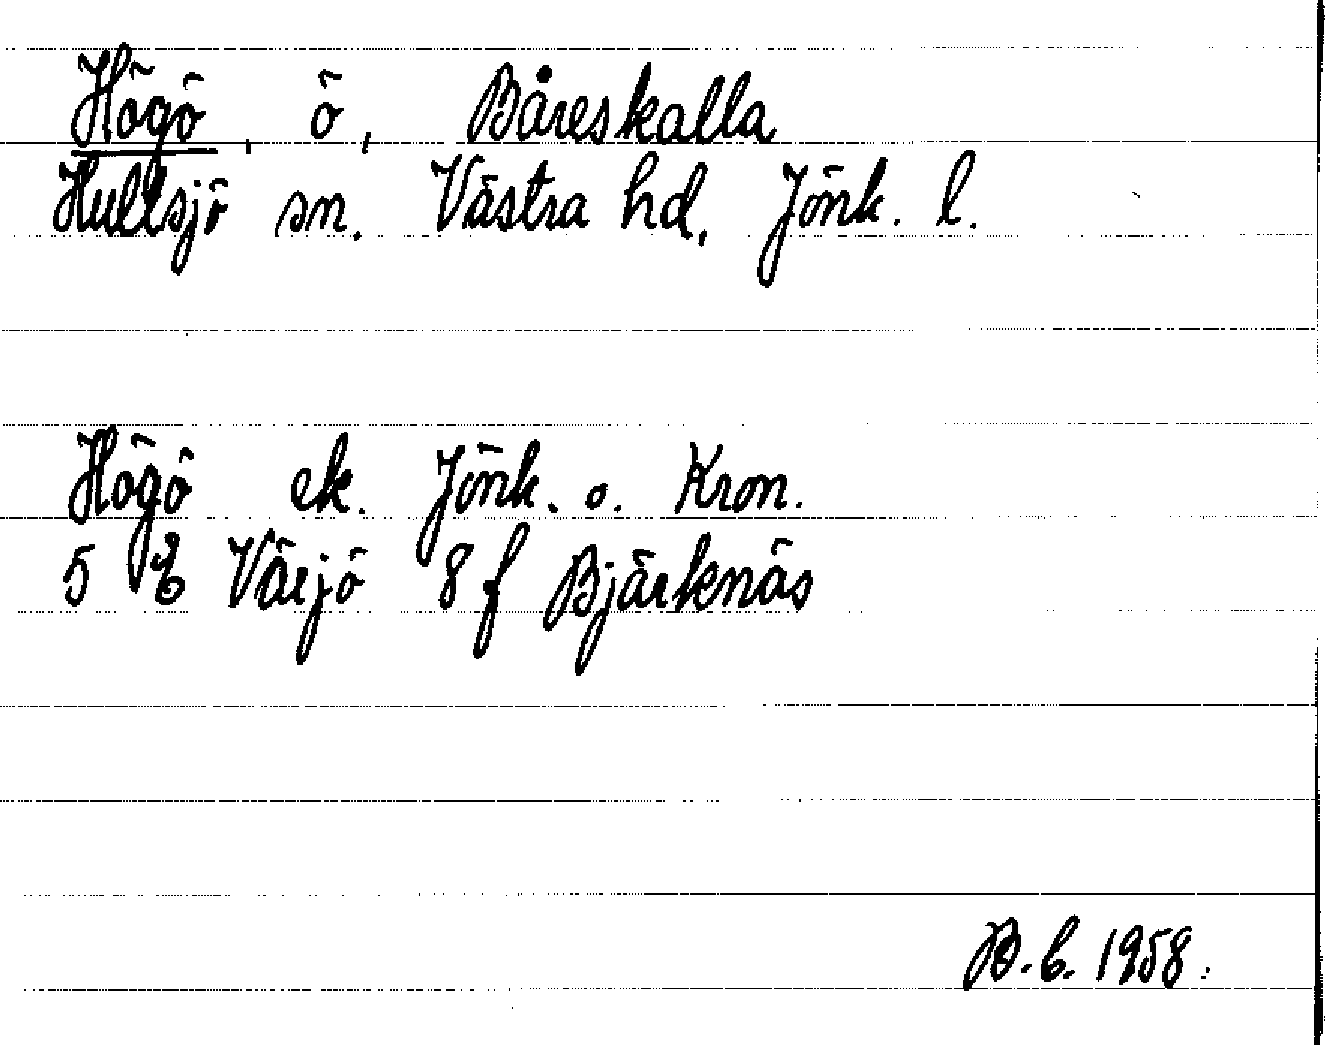 Högö, ö, Båreskalla
Hultsjö sn. Västra hd. Jönk. l.
Högö ek. Jönk. o. Kron.
5 E Värjö 8 f Bjärknäs
B.E. 1958.